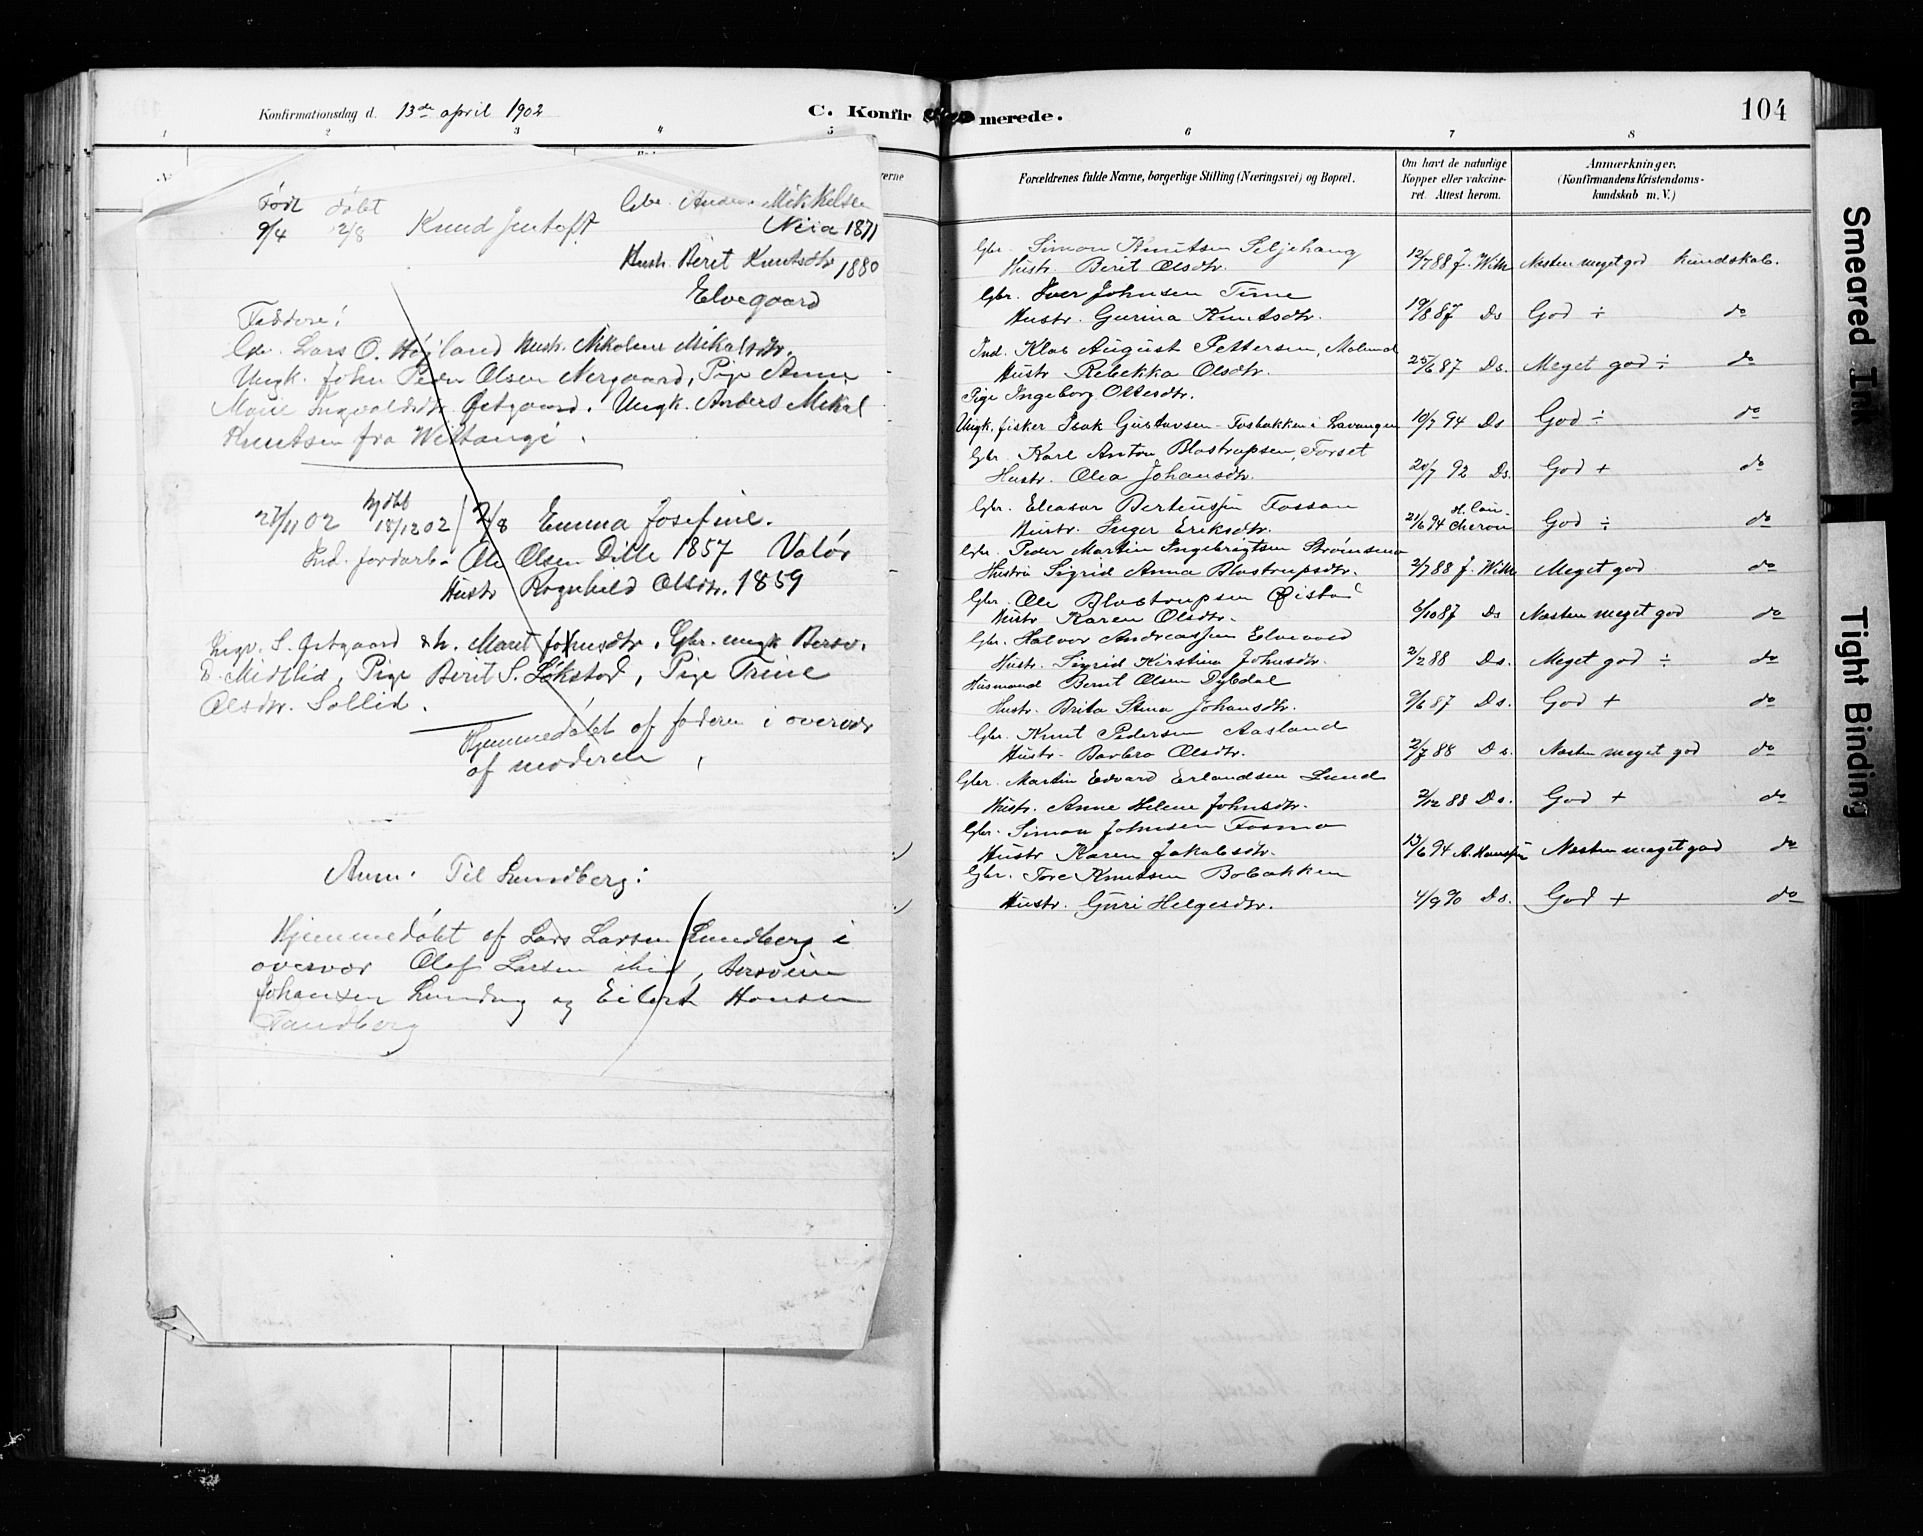 Konfirmationsdag d. 13de april 1902
C. Konfirmerede.
104
1 2 3 4 5 6 7 8
Forældrenes fulde Navne, borgerlige Stilling (Næringsvei) og Bopæl.
Om havt de naturlige Kopper eller vakcineret. Attest herom.
Anmærkninger. (Konfirmandens Kristendomskundskab m. V.)
født døbt
9/4 2/8 Knud Jentoft
Gbr. Anders Mikkelsen
Neia 1871
Hustr. Berit Knutsdtr 1880
Elvegaard
Faddere:
Gbr. Lars O. Høgland Hustr. Nikoline Mikalsdtr.
Ungk. John Peder Olsen Nergaard, Pige Anne
Marie Ingvaldsdtr. Østgaard. Ungk. Anders Mikal
Knutsen fra
hjdbt
27/11 02 18/12 02 2/8 Emma Josefine.
Ind. jordarb. Ole Olsen Dille 1857 Valør
Hustr Ragnhild Olsdtr. 1859
Ingv. S. Østgaard & h. Maret Johnsdtr. Gbr. ungk Bersv.
E. Midtlid, Pige Berit S. Løkstad, Pige Trine
Olsdtr. Sollid.
Hjemmedøbt af faderen i overvær
af moderen
Anm. Til Lundberg:
Hjemmedøbt af Lars Larsen Lundberg i
overvær Olaf Larsen ibid, Bersvein
Johansen Lundberg og Eilert Hansen
Sandberg
Gbr. Simon Knutsen Seljehaug
Hustr. Berit Olsdtr. 12/7 88 J. Wilh Næsten meget god kundskab.
Gbr. Iver Johnsen Time
Hustr. Gurina Knutsdtr. 19/8 87 Ds God ÷ do
Ind. Klas August Pettersen, Moland
Hustr Rebekka Olsdtr. 25/6 87 Ds. Meget god ÷ do
Pige Ingeborg Ottesdtr.
Ungk. fisker Isak Gustavsen - Fosbakken i Lavangen 10/7 94 Ds God ÷ do
Gbr. Karl Anton Blastrupsen, Forset
Hustr. Olea Johansdtr. 20/7 92 Ds. God + do
Gbr. Eleasar Berteussen Fossan
Hustr. Inger Eriksdtr. 21/6 94 God ÷ do
Gbr. Peder Martin Ingebrigtsen Strømsmo
Hustru Sigrid Anna Blastrupsdtr. 2/7 88 J. Wilh Meget god do
Gbr. Ole Blastrupsen
Hustr Karen Olsdtr. 6/10 87 Ds Næsten meget god do
Gbr. Halvor Andreassen Elvevold
Hustr. Sigrid Kirstina Johnsdtr. 2/2 88 Ds. Meget god ÷ do
Husmand Bernt Olsen Dybdal
Hustr. Brita Stina Johansdtr. 9/6 87 Ds. God + do
Gbr. Knut Pedersen Aasland
Hustr. Barbro Olsdtr. 2/7 88 Ds. Næsten meget god do
Gbr. Martin Edvard Erlandsen Lund
Hustr. Anne Helene Johnsdtr. 2/12 88 Ds. God + do
Gbr. Simon Johnsen Fosmo
Hustr Karen Jakobsdtr. 13/6 94 A. Hanssen Næsten meget god do
Gbr. Tore Knutsen Bobakken
Hustr. Guri Helgesdtr. 4/9 90 Ds. God + do
Smeared Ink
Tight Binding